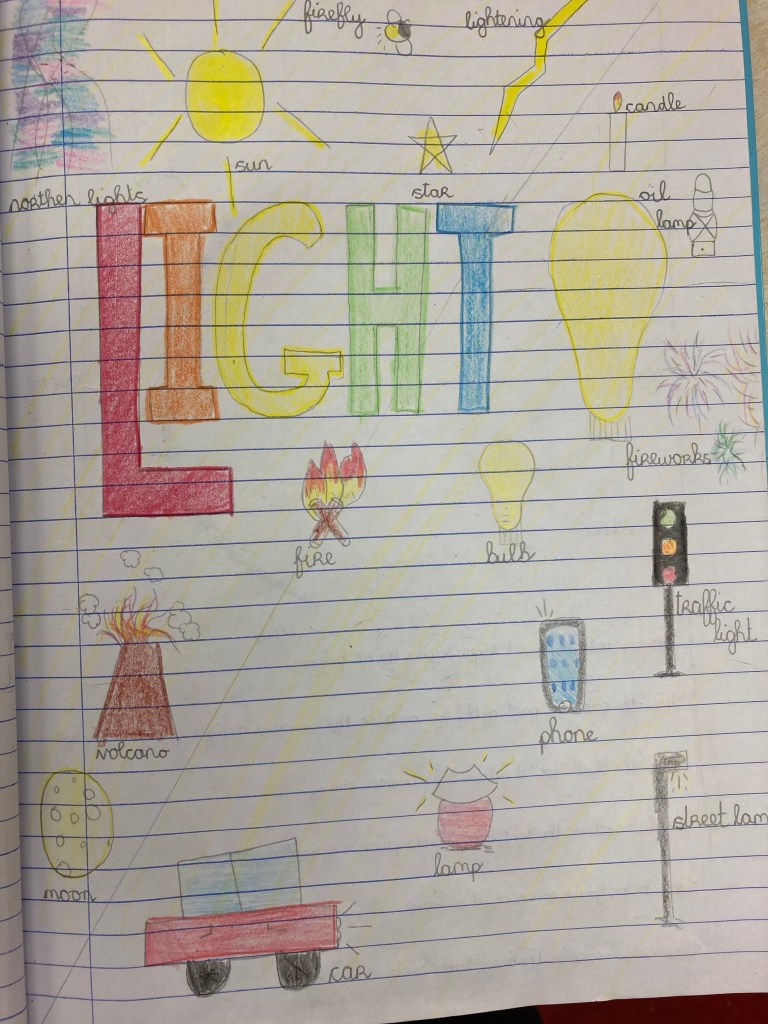 firefly
lightening
candle
sun
star
norther lights
oil
lamp
LIGHT
fireworks
fire
bulb
traffic
light
phone
volcano
street lam
lamp
moon
car